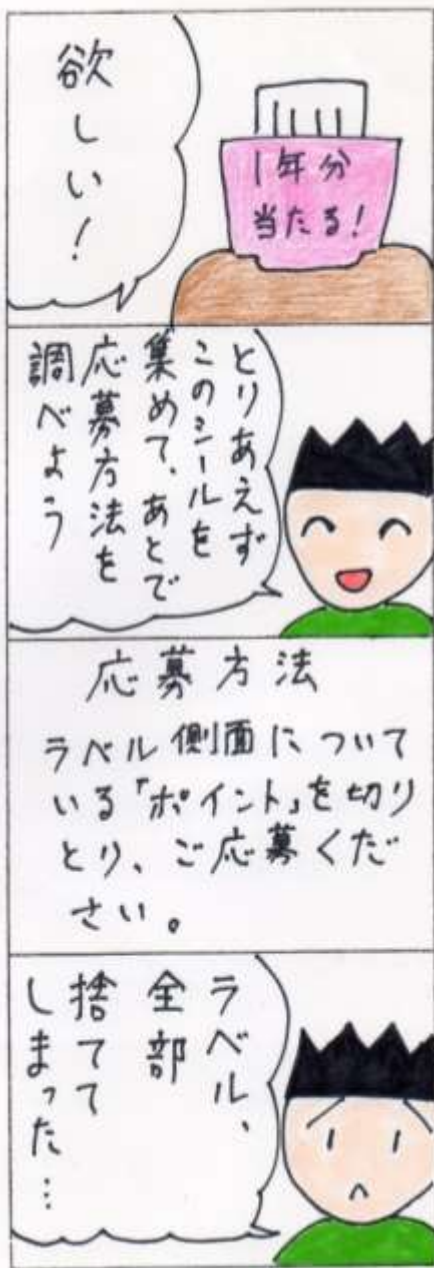 1年分
当たる!
欲しい!
とりあえず
このシールを
集めて、あとで
応募方法を
調べよう
応募方法
ラベル側面について
いる「ポイント」を切り
とり、ご応募くだ
さい。
ラベル、
全部
捨てて
しまった…